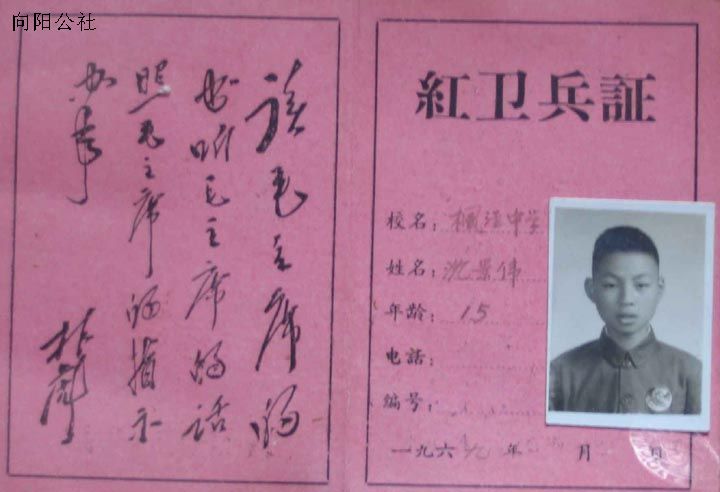 向阳公社
读毛主席的
书听毛主席的话
照毛主席的指示
办事
林彪
紅卫兵証
校名：枫泾中学
姓名：沈景伟
年龄：15
电話：
编号：
一九六九年 月 日